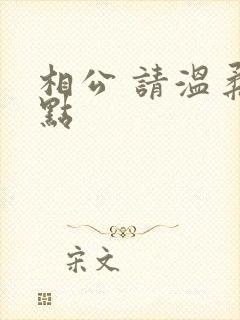 相公 請溫柔
點
宋文